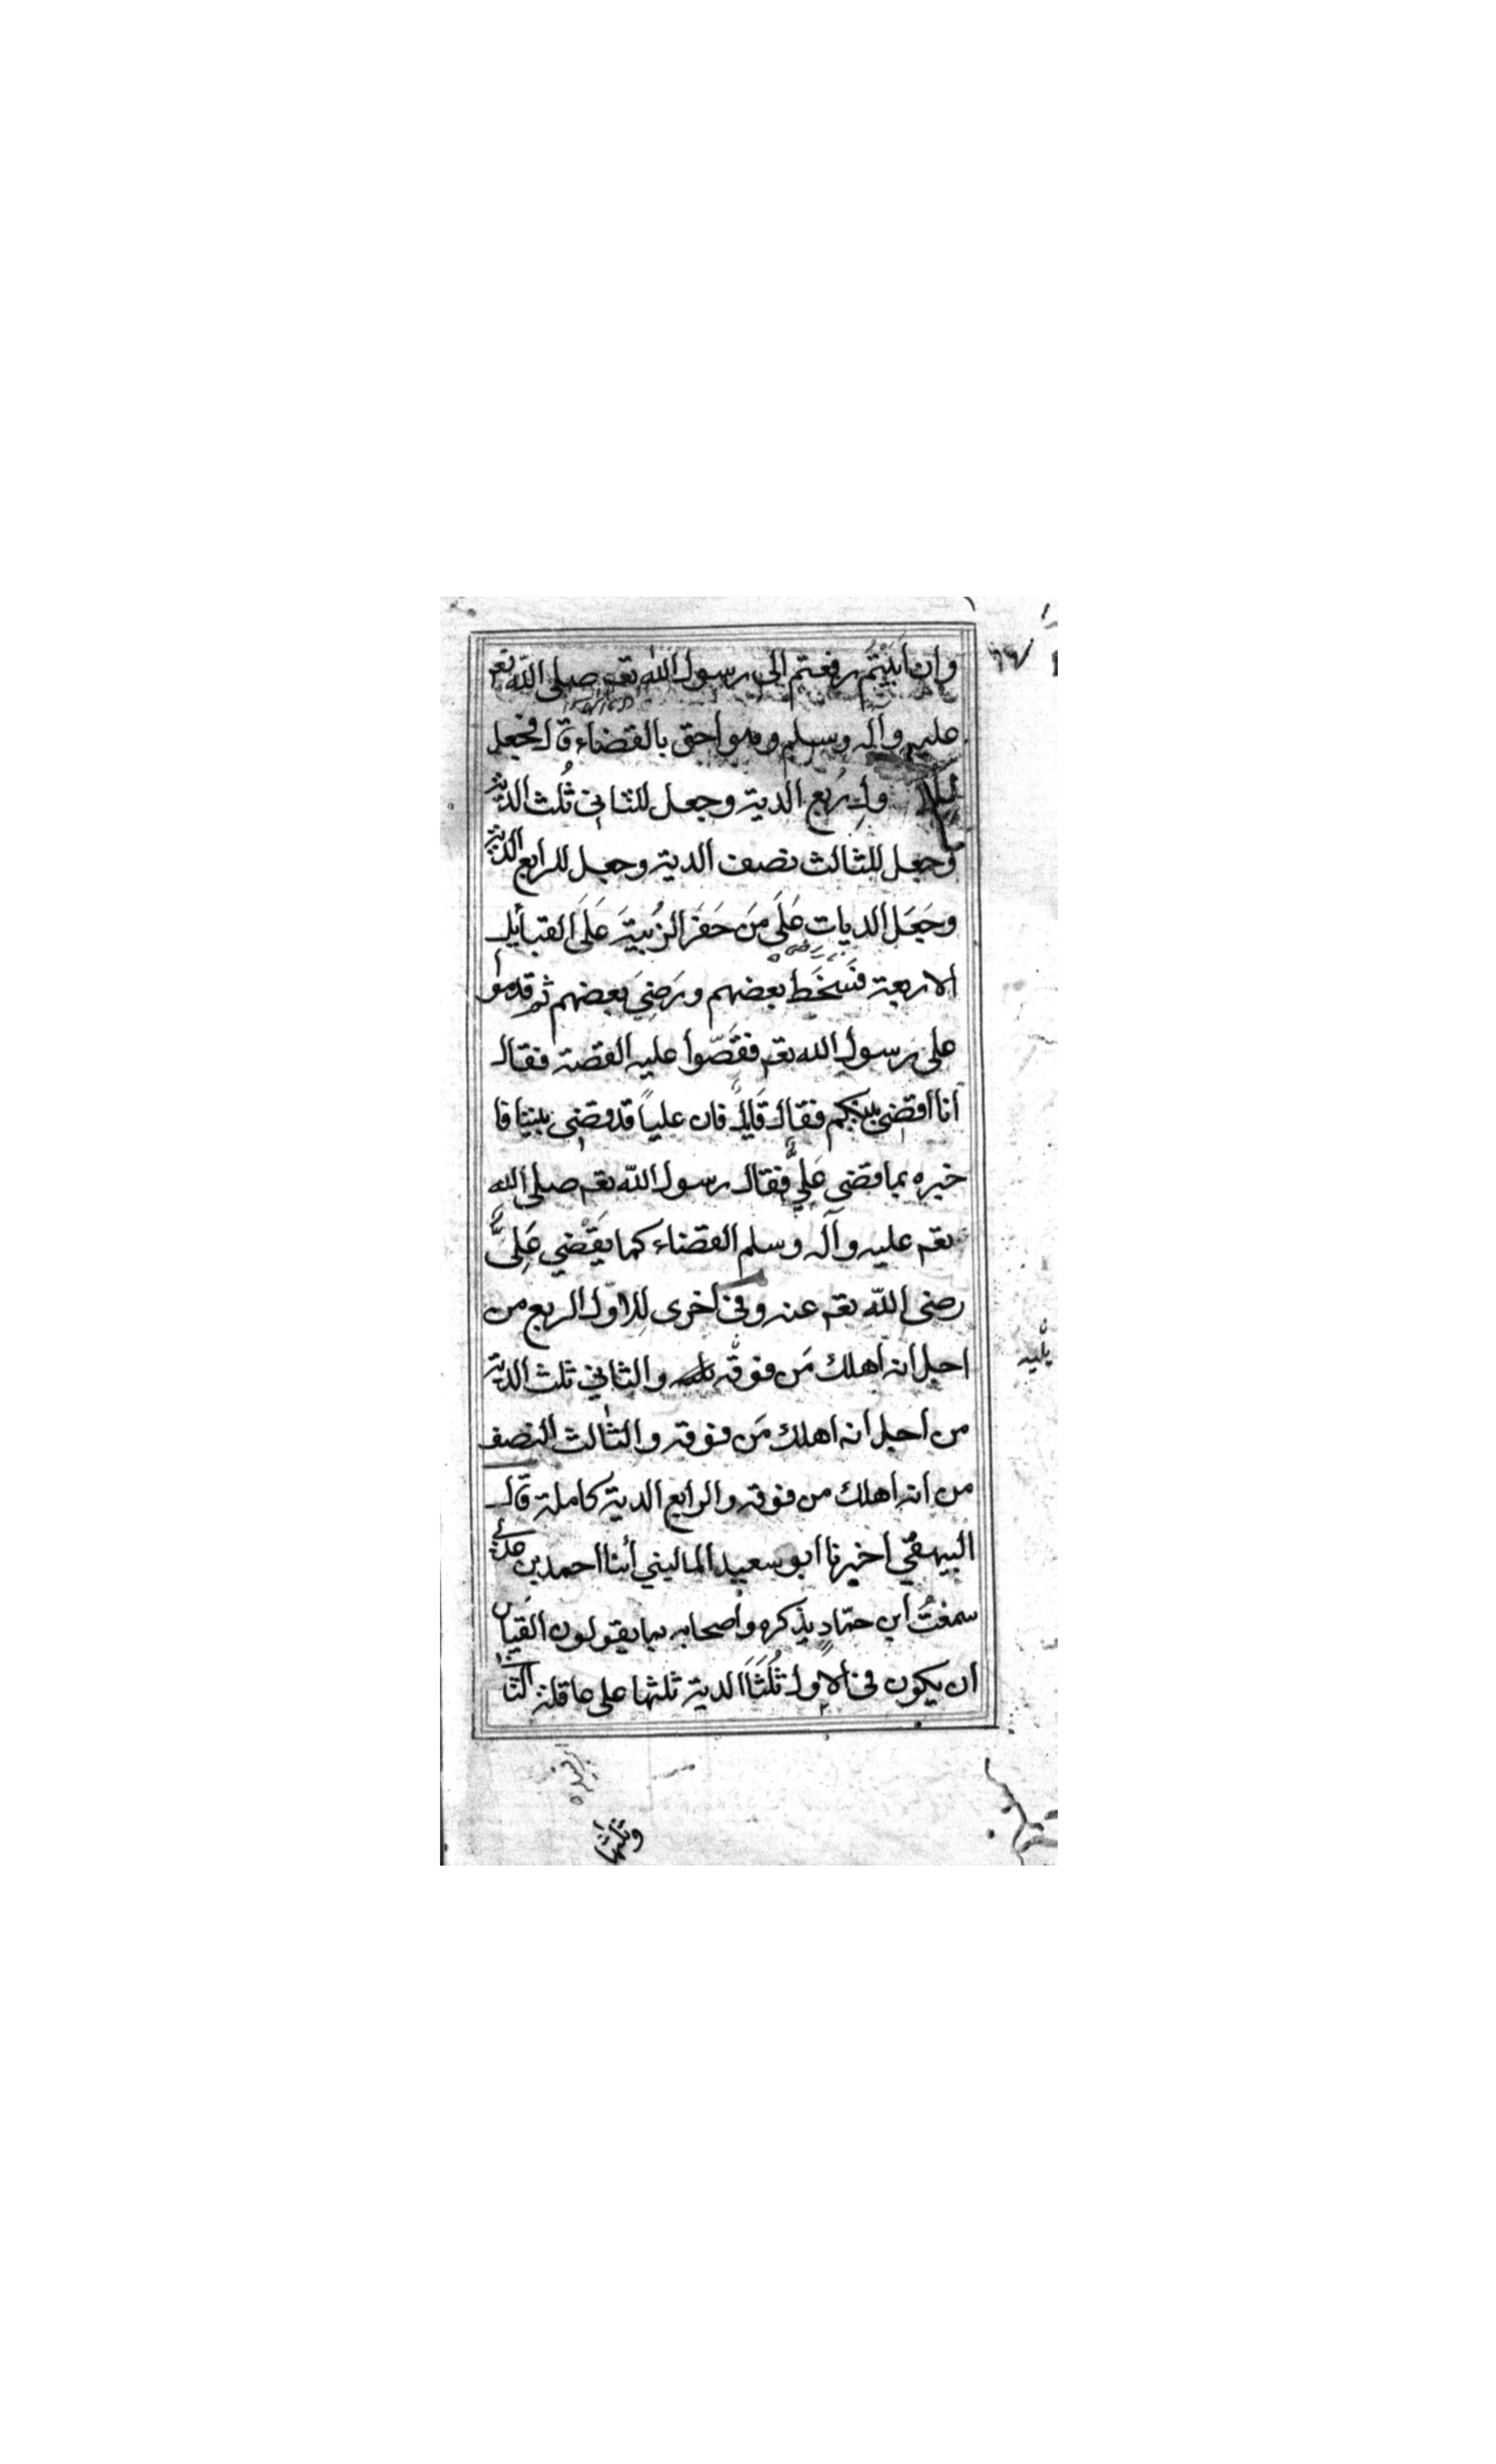 وان اَبَيْتُم رفعتم الى رسول الله تعم صلى الله تعم
عليه وآله وسلم وهو احق بالقضاء قال فجعل
للاول رُبع الدية وجعل للثاني ثُلث الدية
وجعل للثالث نصف الدية وجعل للرابع الدية
وجَعَل الديات عَلَى مَن حَفَر الزُبيَة عَلَى القبايل
الاربعة فَسَخَط بعضهم ورَضِيَ بعضهم ثم قدموا
على رسول الله تعم فقَصّوا عليه القصة فقال
انا اقضي بينكم فقال قَايل فان علياً قد قضى بيننا فا
خبره بما قضى عَلِيٌّ فقال رسول الله تعم صلى الله
تعم عليه وآله وسلم القضاء كما يَقْضِي عَلِيٌّ
رضى الله تعم عنه وفي اخرى للاوّل الربع من
اجل انه اهلك مَن فوقه والثاني ثلث الدية
من اجل انه اهلك مَن فوقه والثالث النصف
من انه اهلك من فوقه والرابع الدية كاملة قال
البيهقي اخبرنا ابو سعيد الماليني أنبأنا احمد بن عدي
سمعتُ ابن حمّاد يذكره واصحابه بما يقولون القياس
ان يكون في الاول ثُلُثَا الدية ثلثها على عاقلة الثا
يليه
وثلثها